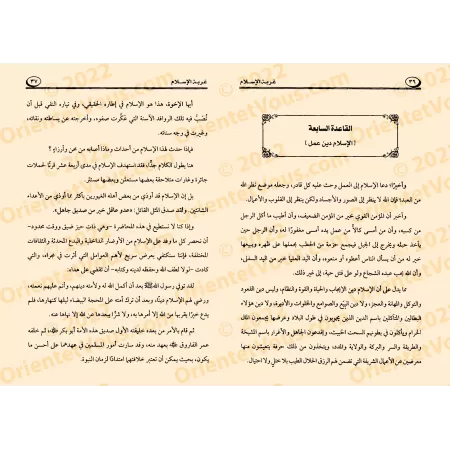 ٣٦
غربة الإسلام
القاعدة السابعة
[الإسلام دين عمل]
وأخيرًا؛ دعا الإسلام إلى العمل وحث عليه كل قادر، وجعله موضع نظر الله
من العبد؛ فإن الله لا ينظر إلى الصور والأجساد ولكن ينظر إلى القلوب والأعمال.
وأخبر أن المؤمن القوي خير من المؤمن الضعيف، وأن أطيب ما أكل الرجل
من كسبه، وأن من أمسى كالاً من عمل يده أمسى مغفورًا له؛ وأن الرجل حين
يأخذ حبله ويخرج إلى الجبل فيجمع حزمة من الحطب يحملها على ظهره ويبيعها
خير له من أن يسأل الناس أعطوه أو منعوه، وأن اليد العليا خير من اليد السفلى،
وأن الله يحب هذه الشجاع ولو على قتل حية، إلى غير ذلك.
مما يدل على أن الإسلام دين الإيجاب والحياة والقوة والنظام، وليس دين القعود
والتوكل والمهانة والعجز، ولا دين البِيَع والصوامع والخلوات والأديرة، ولا دين هؤلاء
البطالين والمتأكلين باسم الدين الذين يجوبون في طول البلاد وعرضها يجمعون المال
الحرام ويأكلون في بطونهم السحت الخبيث،
والطريقة والسر والبركة والولاية والمدد، ويتخذون من ذلك حرفة يتعيشون منها
معرضين عن الأعمال الشريفة التي تضمن لهم الرزق الحلال الطيب بلا ختل ولا احتيال.
غربة الإسلام
٣٧
أيها الإخوة، هذا هو الإسلام في إطاره الحقيقي، وفي تياره النقي قبل أن
تُصَب فيه تلك الروافد الآسنة التي عكَّرت صفوه، وأخرجته عن بساطته ونقائه،
وغيرت في وجه سناته.
فماذا حدث لهذا الإسلام من أحداث، وماذا أصابه من محن وأرزاء؟
هنا يطول الكلام جدًّا، فقد استهدف الإسلام في مدى أربعة عشر قرنًا لحملات
جائرة وغارات متلاحقة بعضها مستعلن وبعضها مستتر.
بل إن الإسلام قد أوذي من بعض أهله الغيورين بأكثر مما أوذي من الأعداء
الشانئين. ولقد صدق المثل القائل: «عدو عاقل خير من صديق جاهل».
وإذا كنا لا نستطيع في هذه المحاضرة -وهي ذات حيز ضيق ووقت محدود-
أن نحصر كل ما وفد على الإسلام من الأوضار الداخلية والبدع المحدثة والثقافات
المختلفة، فإننا سنكتفي بعرض سريع لأهم العوامل التي أثرت في مجراه، والتي
كادت -لولا لطف الله وحفظه لدينه وكتابه- أن تقضي على هداه.
لقد توفي رسول الله ﷺ بعد أن أكمل الله له ولأمته دينهم، وأتم عليهم نعمته،
ورضي لهم الإسلام دينًا، وبعد أن ترك أمته على المحجة البيضاء ليلها كنهارها، فلم
يدع خيرًا يقربها من الله إلا أمرها به، ولا شرًّا يبعدها عن الله إلا نهاها عنه.
ثم قام بالأمر من بعده خليفته الأول صديق هذه الأمة أبو بكر ، ثم خلفه
عمر الفاروق بعهد منه، وقد سارت أمور المسلمين في عهدهما على أحسن ما
يكون، بحيث يمكن أن تعتبر خلافتهما امتدادًا لزمان النبوة.
© 2022
OrientetVous.com